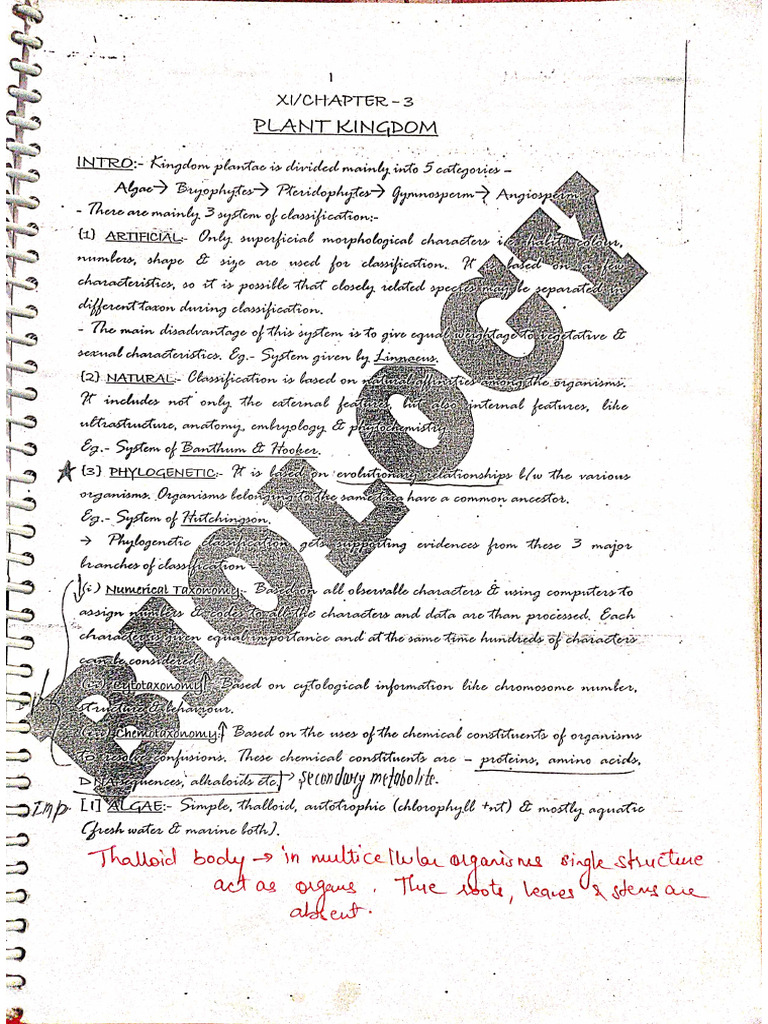 1
XI/CHAPTER - 3
PLANT KINGDOM
INTRO:- Kingdom plantae is divided mainly into 5 categories -
Algae→ Bryophytes→ Pteridophytes→ Gymnosperm→ Angiosperm.
- There are mainly 3 system of classification:-
(1) ARTIFICIAL:- Only superficial morphological characters i.e. habit, colour,
numbers, shape & size are used for classification. It is based on a few
characteristics, so it is possible that closely related species may be separated in
different taxon during classification.
- The main disadvantage of this system is to give equal weightage to vegetative &
sexual characteristics. Eg.- System given by Linnaeus.
(2) NATURAL:- Classification is based on natural affinities among the organisms.
It includes not only the external features but also internal features, like
ultrastructure, anatomy, embryology & phytochemistry.
Eg.- System of Banthum & Hooker.
(3) PHYLOGENETIC:- It is based on evolutionary relationships b/w the various
organisms. Organisms belonging to the same taxa have a common ancestor.
Eg.- System of Hutchingson.
→ Phylogenetic classification gets supporting evidences from these 3 major
branches of classification
(i) Numerical Taxonomy:- Based on all observable characters & using computers to
assign numbers & codes to all the characters and data are than processed. Each
character is given equal importance and at the same time hundreds of characters
can be considered
(ii) Cytotaxonomy:- Based on cytological information like chromosome number,
structure & behaviour.
(iii) Chemotaxonomy:- Based on the uses of the chemical constituents of organisms
to resolve confusions. These chemical constituents are - proteins, amino acids,
DNA sequences, alkaloids etc. → secondary metabolite.
Imp. [1] ALGAE:- Simple, thalloid, autotrophic (chlorophyll +nt) & mostly aquatic
(fresh water & marine both).
Thalloid body → in multicellular organisms single structure
act as organs. The roots, leaves & stems are
absent.
BIOLOGY